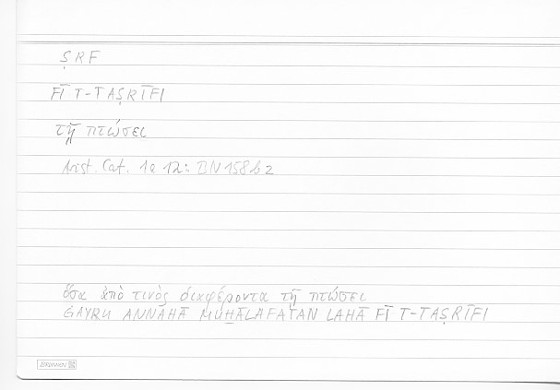 ṢRF
FĪ T-TAṢRĪFI
τῇ πτώσει
Arist. Cat. 1a 12: BN 158b2
ὅσα ἀπό τινὸς διαφέροντα τῇ πτώσει
GAYRU ANNAHĀ MUḪĀLAFATAN LAHĀ FĪ T-TAṢRĪFI
BRUNNEN